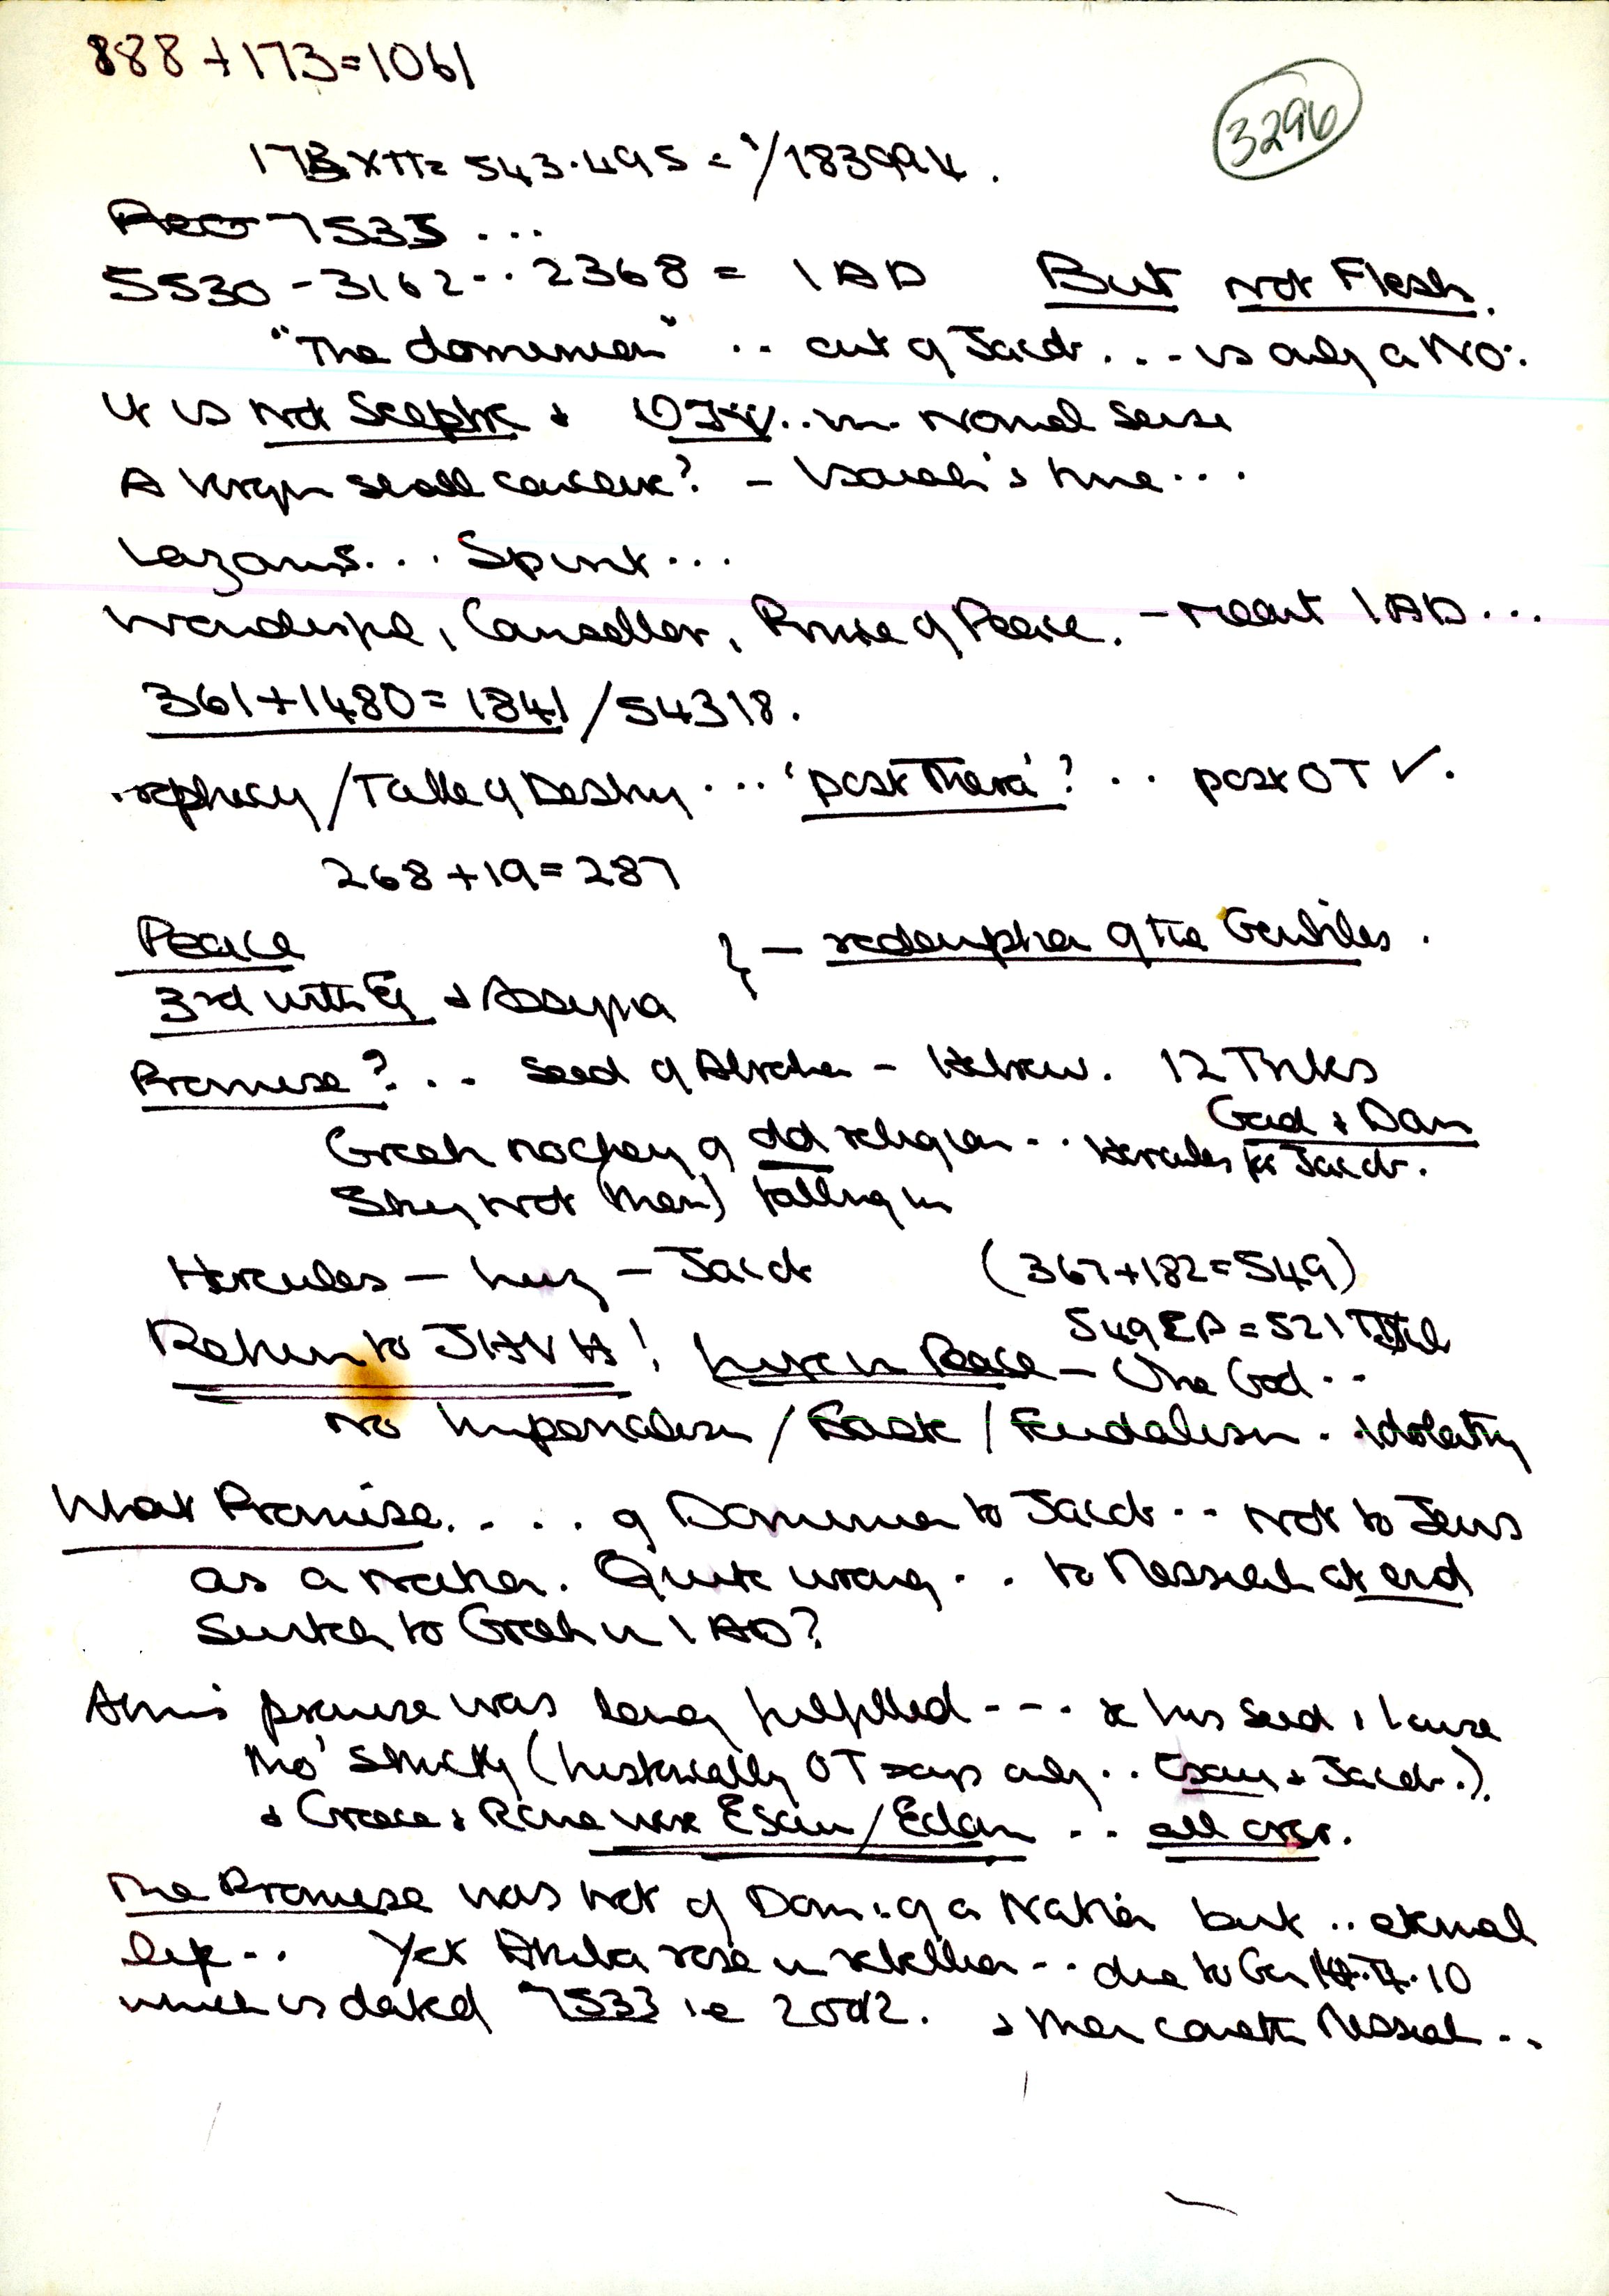 888 + 173 = 1061
3296
173 × π = 543.495 = 1/183994.
7533 ...
5530 - 3162 .. 2368 = 1 AD But not Flesh.
"The dominion" .. out of Jacob ... is only a No:
it is not Sceptre + .. in normal sense
A Virgin shall conceive? - Isaiah's time ...
Lazarus ... Spirit ...
Wonderful, Counsellor, Prince of Peace. - meant 1 AD ...
361 + 1480 = 1841 / 54318.
Prophecy / Table of Destiny ... 'post Thera'? .. post OT ✓.
268 + 19 = 287
Peace } - redemption of the Gentiles.
3rd with Eg + Assyria
Promise? ... Seed of Abraham - Hebrew. 12 Tribes
Gad + Dan
Greek of old religion .. Hercules for Jacob.
Sky not (then) falling in
Hercules - Luz - Jacob (367 + 182 = 549)
549 EP = 521
Return to JHVH! Live in Peace - One God ..
No Imperialism / / Feudalism . idolatry
What Promise .... of Dominion to Jacob .. not to Jews
as a nation. Quite wrong .. to Messiah at end
Switch to Greek in 1 AD?
promise was long fulfilled --- his seed,
tho' strictly (historically OT says only .. Esau + Jacob.).
+ Greece + Rome were Esau / Edom .. all over.
The Promise was not of Dom: of a Nation but .. eternal
life .. Yet Akiba rose in rebellion .. due to Gen .10
which is dated 7533 ie 2002. + then cometh Messiah ..